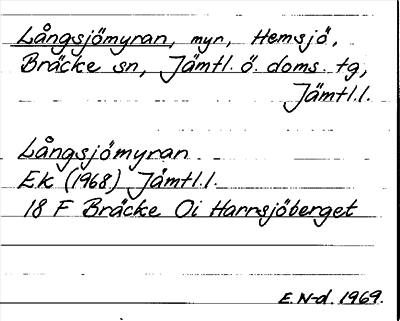 Långsjömyran, myr, Hemsjö,
Bräcke sn, Jämtl. ö. doms. tg,
Jämtl.l.
Långsjömyran
Ek (1968) Jämtl.l.
18 F Bräcke Oi Harrsjöberget
E. N-d. 1969.